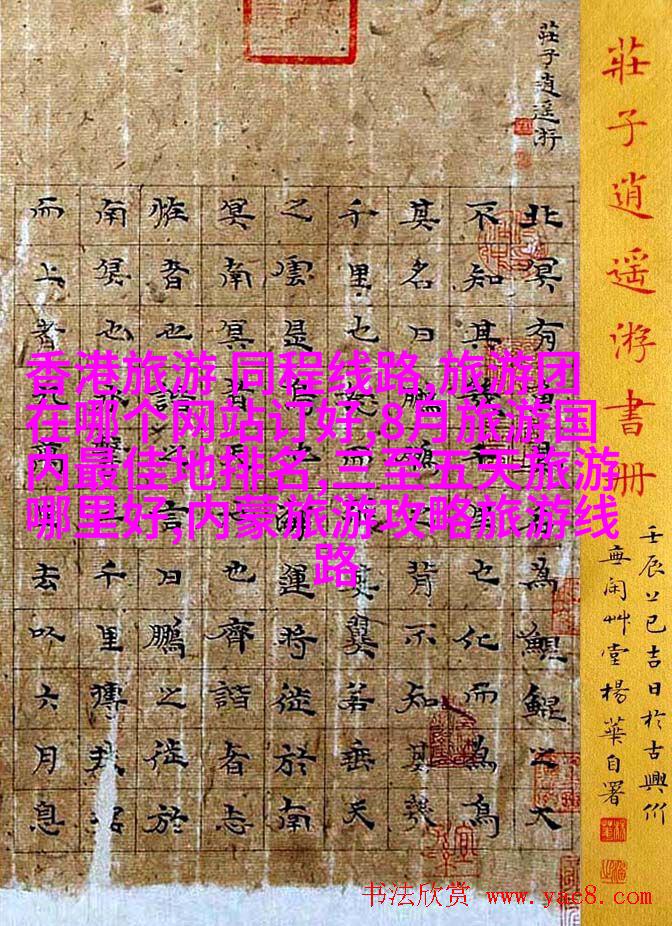 莊子逍遥游書册
壬辰上巳吉日於古興竹
無闲艸堂楊華自署
莊子逍遥游
北冥有魚其名為鯤鯤之大
不知其幾千里也化而為鳥
其名曰鵬鵬之背不知其幾
千里也怒而飛其翼若垂天
之雲是鳥也海運將徙於南
冥南冥者天池也齊諧者志
怪者也諧之言曰鵬之徙於
南冥也水擊三千里摶扶搖
而上者九萬里去以六月息
香港旅游 同程线路,旅游团
在哪个网站订好,8月旅游国
内最佳地排名,三至五天旅游
哪里好,内蒙旅游攻略旅游线
路
书法欣赏 www.yac8.com